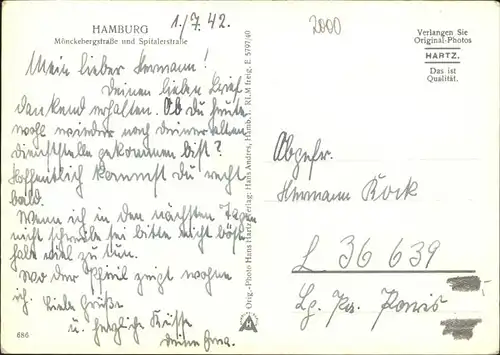 HAMBURG
Mönckebergstraße und Spitalerstraße
1./7. 42.
2000
Verlangen Sie
Original-Photos
HARTZ.
Das ist
Qualität.
Mein lieber Hermann!
Deinen lieben Brief
dankend erhalten. Ob Du heute
wohl wieder nach deiner alten
Dienststelle gekommen bist?
Hoffentlich kommst Du recht
bald.
Wenn ich in den nächsten Tagen
nicht schreibe sei bitte nicht böse
habe viel zu tun.
Wo der Pfeil zeigt wohne
ich. Liebe Grüße
u. herzliche Küsse
Deine
Orig.-Photo Hans Hartz, Verlag: Hans Andres, Hambg. 1. RLM freig. E 5797/40
Hermann Kock
L 36 639
Lg. Pa. Paris
686